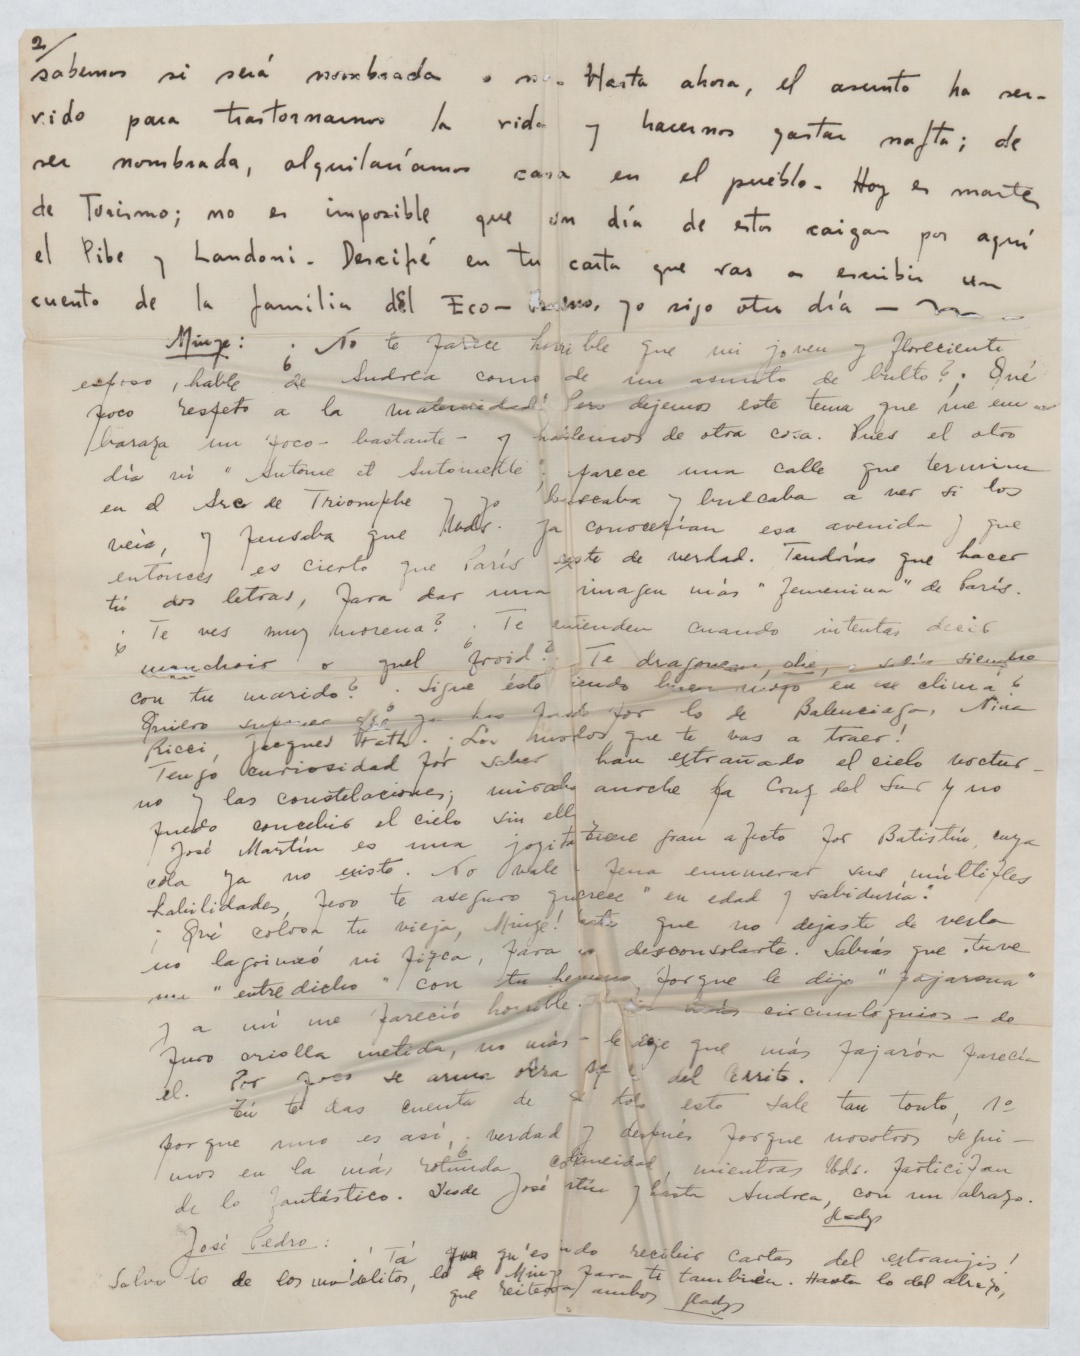 2/
sabemos si será nombrada o no. Hasta ahora, el asunto ha ser-
vido para trastornarnos la vida y hacernos gastar nafta; de
ser nombrada, alquilaríamos casa en el pueblo. Hoy es martes
de Turismo; no es imposible que un día de estos caigan por aquí
el Pibe y Landoni. Descifré en tu carta que vas a escribir un
cuento de la familia del Eco- yo sigo otro día —
Minge: ¿No te parece horrible que mi joven y floreciente
esposo, hable de Andrea como de un asunto de bulto? ¡Qué
poco respeto a la maternidad! Pero dejemos este tema que me em-
baraza un poco- bastante- y hablemos de otra cosa. Pues el otro
día vi "Antoine et Antoinette", aparece una calle que termina
en el Arc de Triomphe y yo buscaba y buscaba a ver si los
veía, y pensaba que Uds. ya conocerían esa avenida y que
entonces es cierto que París existe de verdad. Tendrías que hacer
tú dos letras, para dar una imagen más "femenina" de París.
¿Te ves muy morena? ¿Te entienden cuando intentas decir
mouchoir o quel froid? ¿Te dragonean, che, o salís siempre
con tu marido? ¿Sigue éste siendo buen mozo en ese clima?
Quiero suponer que ya has pasado por lo de Balenciaga, Nina
Ricci, Jacques Fath. ¡Los modelos que te vas a traer!
Tengo curiosidad por saber han extrañado el cielo noctur-
no y las constelaciones; miraba anoche la Cruz del Sur y no
puedo concebir el cielo sin ella
José Martín es una joyita tiene gran afecto por Batistín, cuya
cola ya no existe. No vale pena enumerar sus múltiples
habilidades, pero te aseguro que crece "en edad y sabiduría".
¡Qué colosa tu vieja, Minge! hasta que no dejaste de verla
no lagrimeó ni pizca, para no desconsolarte. Sabrás que tuve
un "entredicho" con tu hermano, porque le dijo "pajarona"
y a mí me pareció horrible. circunloquios - de
puro criolla metida, no más - le dije que más pajarón parecía
él. Por poco se arma otra del Cerrito.
Tú te das cuenta de que todo esto sale tan tonto, 1º
porque uno es así, ¿verdad? y después porque nosotros segui-
mos en la más rotunda cotidianeidad, mientras Uds. participan
de lo fantástico. Desde José Martín y hasta Andrea, con un abrazo.
Gladys
José Pedro:
¡Tá que qu'es lindo recibir cartas del extranjis!
Salvo lo de los modelitos, lo de Minge para ti también. Hasta lo del abrazo,
que reiteran ambos Gladys